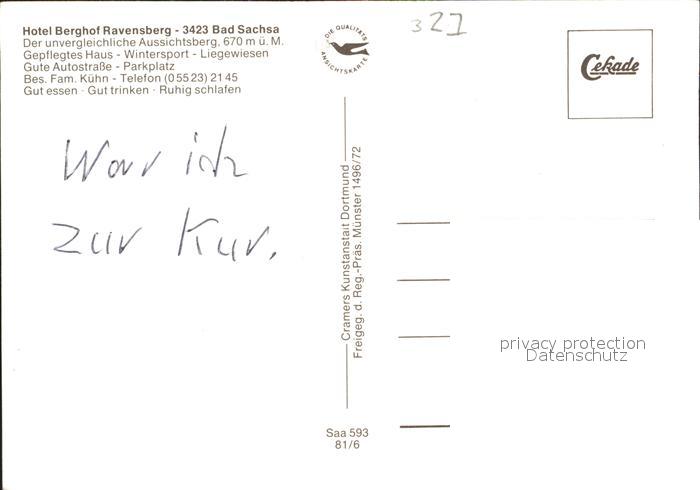 Hotel Berghof Ravensberg - 3423 Bad Sachsa
Der unvergleichliche Aussichtsberg, 670 m ü. M.
Gepflegtes Haus - Wintersport - Liegewiesen
Gute Autostraße - Parkplatz
Bes. Fam. Kühn - Telefon (0 55 23) 21 45
Gut essen · Gut trinken · Ruhig schlafen
War ich
zur Kur.
DIE QUALITÄTS
ANSICHTSKARTE
327
Cekade
Cramers Kunstanstalt Dortmund
Freigeg. d. Reg.-Präs. Münster 1496/72
Saa 593
81/6
privacy protection
Datenschutz